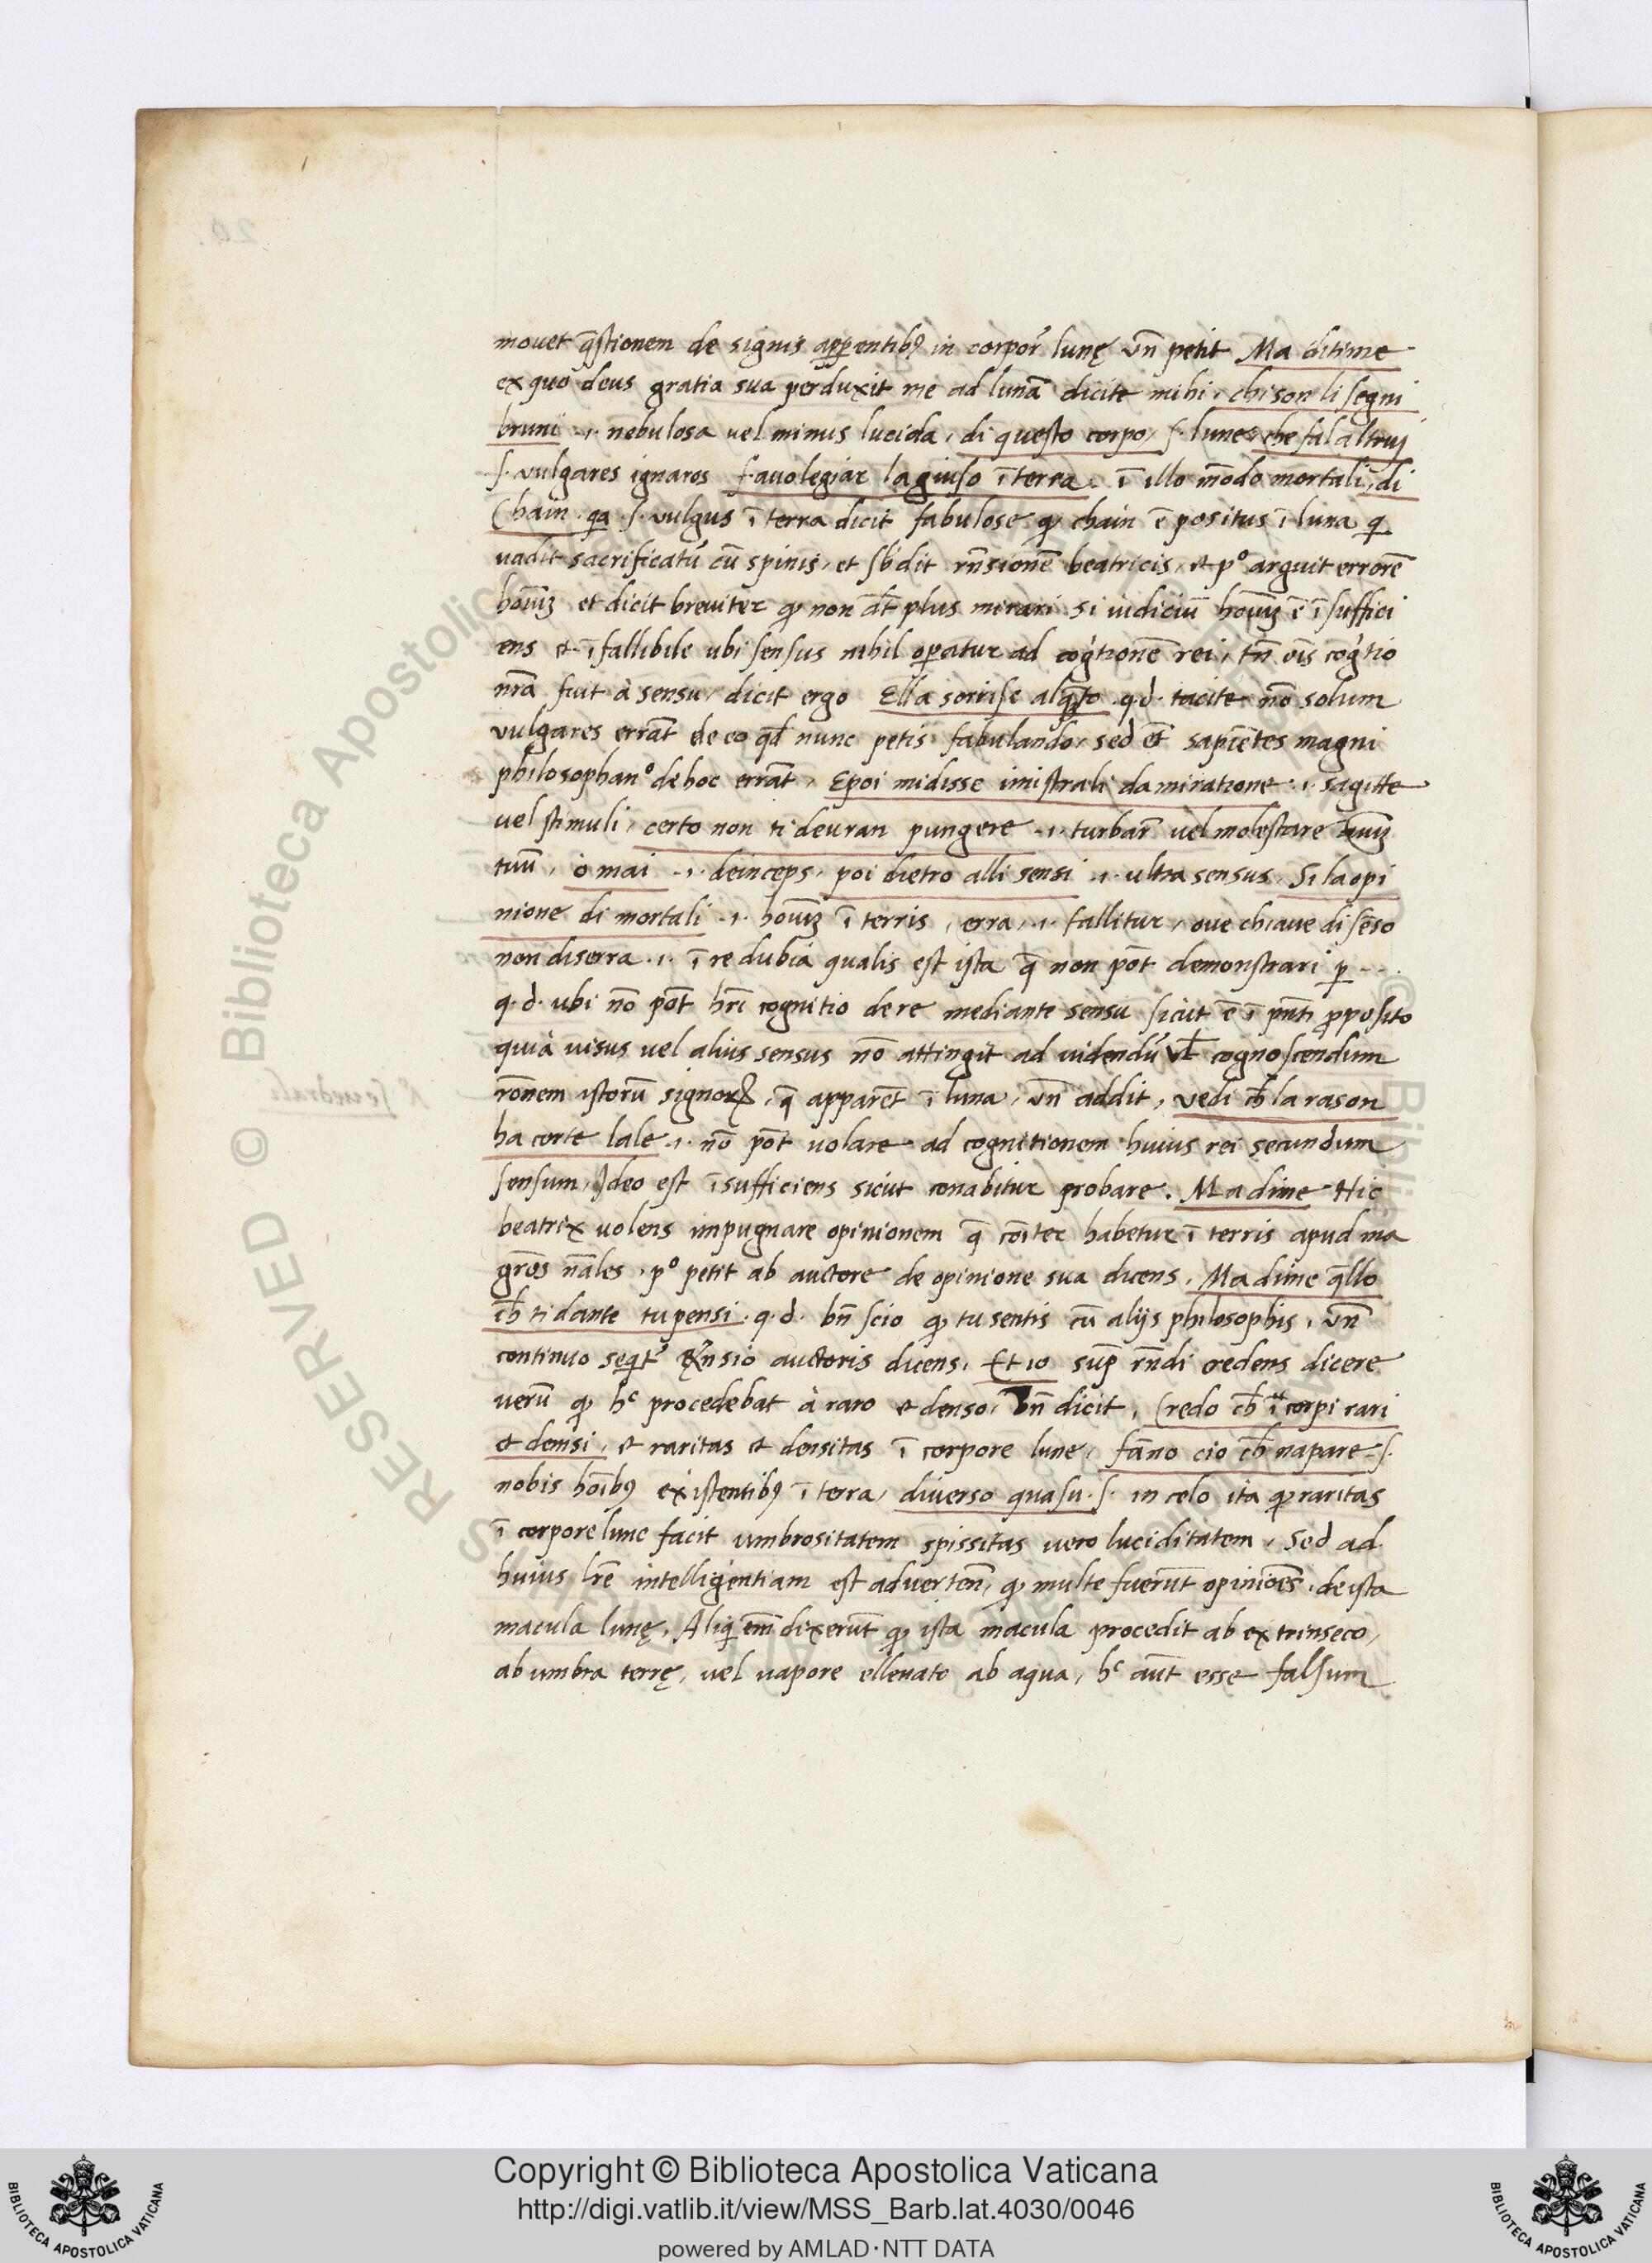 mouet q̄stionem de signis apparentibꝰ in corpor̄ lunę vn̄ petit Ma ditime
ex quo deus gratia sua perduxit me ad lunā dicite mihi, chi son li segni
bruni .i. nebulosa uel minus lucida, di questo corpo, s. lune, che fal altruj
s. vulgares ignaros favolegiar la giuso ī terra. ī illo mōdo mortali, di
Chain. qa .s. vulgus ī terra dicit fabulose ꝙ chain ē positus ī luna q
uadit sacrificatū cū spinis, et sb̄dit rn̄sionē beatricis, et p° arguit errorē
hoīuꝫ et dicit breuiter ꝙ non dt̄ plus mirari si iudiciū hoīuꝫ ē īsuffici
ens et ī fallibile ubi sensus nihil operatur ad cogtionē rei, tn̄ oīs cogtio
nrā fuit à sensu, dicit ergo Ella sorrise alqāto q.d. tacite nō solum
vulgares errāt de eo qd̄ nunc petis fabulando, sed et̄ sapiētes magni
philosophan° de hoc errāt, E poi midisse inistrali da miratione .i. sagitte
uel stimuli, certo non ti deuran pungere .i. turbar̄ uel molestare
tuū, o mai .i. deinceps, poi dietro alli sensi .i. ultra sensus, Si la opi
nione di mortali .i. hoīuꝫ ī terris, erra, .i. fallitur, oue chiaue di sēso
non diserra .i. ī re dubia qualis est ista q̄ non pōt demonstrari p ...
q.d. ubi nō pōt hr̄i cognitio de re mediante sensu sicut ē ī pn̄ti proposito
quia uisus uel alius sensus nō attingit ad uidendū vl̄ cognoscendum
rōnem istorū signoꝝ, q̄ apparēt ī luna, vn̄ addit, vedi ch̄ la rason
ha corte lale .i. nō pōt uolare ad cognitionem huius rei secundum
sensum, Ideo est īsufficiens sicut conabitur probare. Ma dime Hic
beatrix uolens impugnare opinionem q̄ cōiter habetur ī terris apud ma
gr̄os nāles, p° petit ab auctore de opinione sua dicens, Ma dime q̄llo
ch̄ ti dante tu pensi .q.d. bn̄ scio ꝙ tu sentis cū alijs philosophis, vn̄
continuo seqt̄ Rn̄sio auctoris dicens, Et io sup̄ rn̄di credens dicere
uerū ꝙ hᶜ procedebat à raro et denso, vn̄ dicit, Credo ch̄ i corpi rari
et densi, et raritas et densitas ī corpore lune, fāno cio ch̄ napare .s.
nobis hoībꝰ existentibꝰ ī terra, diuerso qua su .s. in celo ita ꝙ raritas
ī corpore lune facit umbrositatem spissitas uero luciditatem, Sed ad
huius lr̄e intelligentiam est aduertēn, ꝙ multe fuerūt opiniōes, de ista
macula lunę, Aliq em̄ dixerūt ꝙ ista macula procedit ab extrinseco,
ab umbra terrę, vel uapore elleuato ab aqua, hᶜ aūt esse falsum
Copyright © Biblioteca Apostolica Vaticana
http://digi.vatlib.it/view/MSS_Barb.lat.4030/0046
powered by AMLAD·NTT DATA
BIBLIOTECA APOSTOLICA VATICANA
BIBLIOTECA APOSTOLICA VATICANA